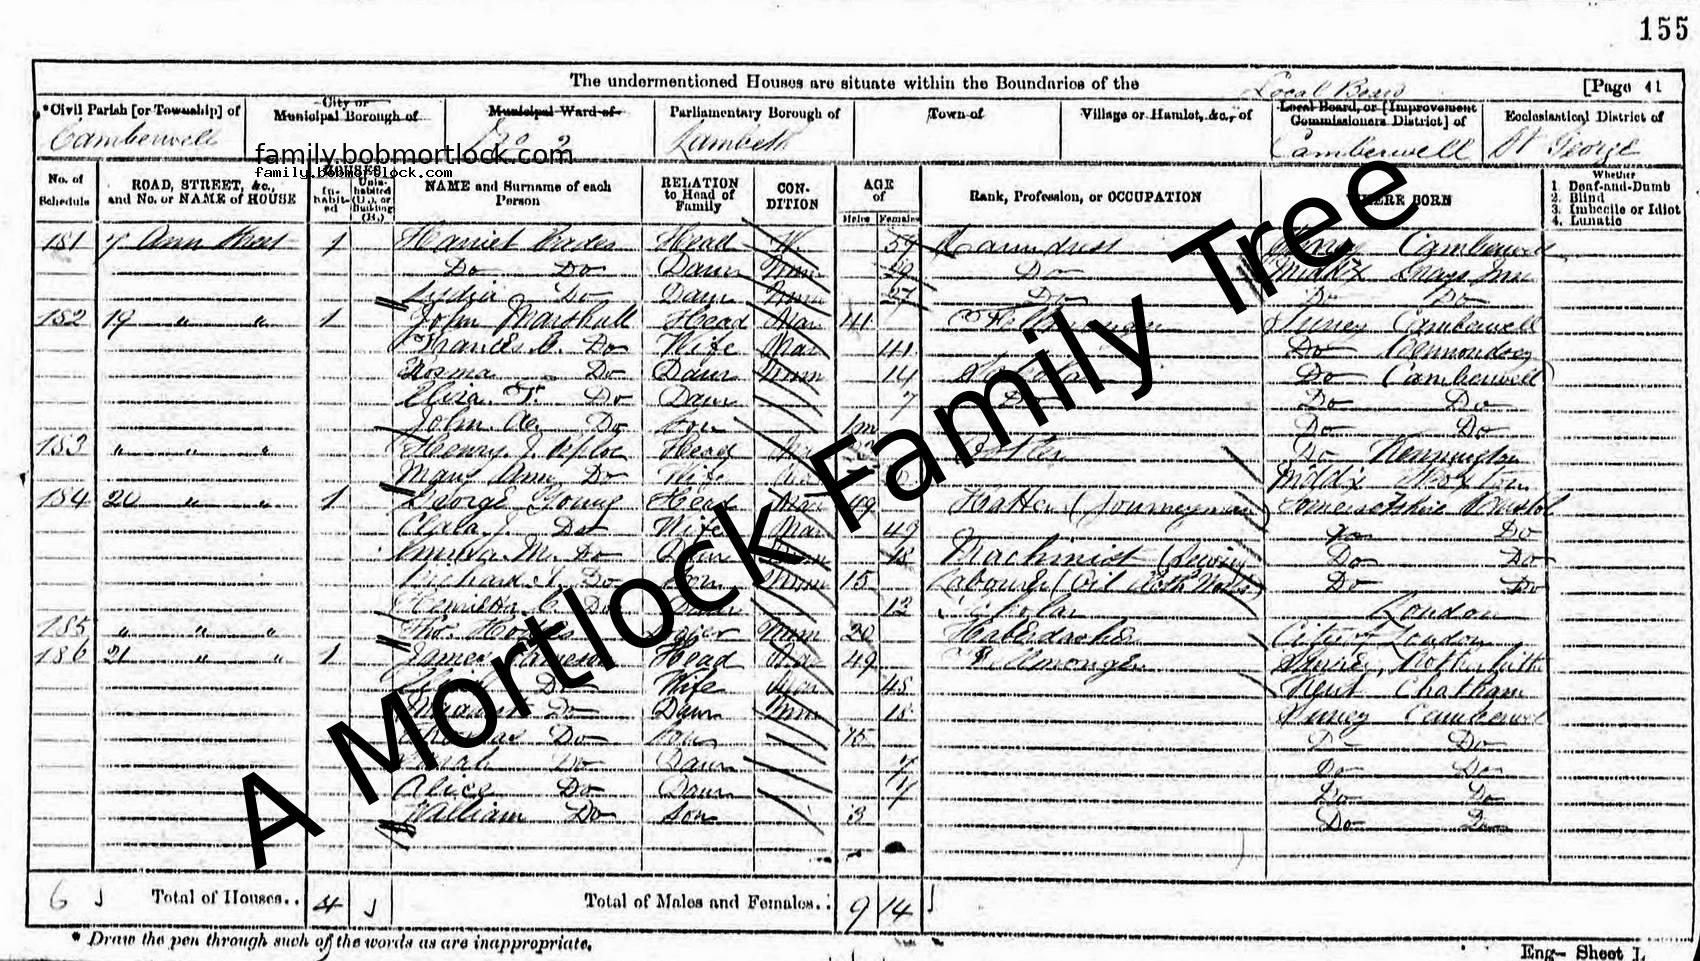 155
The undermentioned Houses are situate within the Boundaries of the
[Page 41
*Civil Parish [or Township] of
City or Municipal Borough of
Municipal Ward of
Parliamentary Borough of
Town of
Village or Hamlet, &c., of
Local Board
Local Board, or [Improvement Commissioners District] of
Ecclesiastical District of
Camberwell
No 2
Lambeth
Camberwell
St George
family.bobmortlock.com
family.bobmortlock.com
No. of Schedule
ROAD, STREET, &c., and No. or NAME of HOUSE
In-habit-ed
Unin-habited (U.), or Building (B.)
NAME and Surname of each Person
RELATION to Head of Family
CON-DITION
AGE of
Males
Females
Rank, Profession, or OCCUPATION
WHERE BORN
Whether
1. Deaf-and-Dumb
2. Blind
3. Imbecile or Idiot
4. Lunatic
181 7 Ann Street 1 Harriet Head W. 59 Laundress Surrey Camberwell
Do Do Daur Unm 29 Do Middx Grays Inn
Lydia Do Daur Unm 27 Do Do Do
182 19 " " 1 John Marshall Head Mar 41 Surrey Camberwell
Frances Do Wife Mar 41 Do Bermondsey
Do Daur Unm 14 Do Camberwell
Eliza Do Daur 7 Do Do Do
John Do Son 1m Do Do
183 " " " Henry J. Head Do Kennington
Mary Ann Do Wife Middx Hoxton
184 20 " " 1 George Young Head Mar 49 Hatter (Journeyman) Somersetshire Bristol
Do Wife Mar 49 Do Do
M. Do Daur Unm 18 Machinist (Sewing Do Do
Richard Do Son Unm 15 Labourer (Oil Cloth Do Do
Do Daur 12 Scholar London
185 " " " Thos. Unm 20 Haberdasher City of London
186 21 " " 1 James Head Mar 49 Fellmonger Surrey, Rotherhithe
Do Wife Mar 45 Kent Chatham
Do Daur Unm 18 Surrey Camberwell
Thomas Do Son 15 Do Do
Sarah Do Daur 7 Do Do
Alice Do Daur 4 Do Do
William Do Son 3 Do Do
A Mortlock Family Tree
6 Total of Houses.. 4 Total of Males and Females.. 9 14
* Draw the pen through such of the words as are inappropriate.
Eng- Sheet L